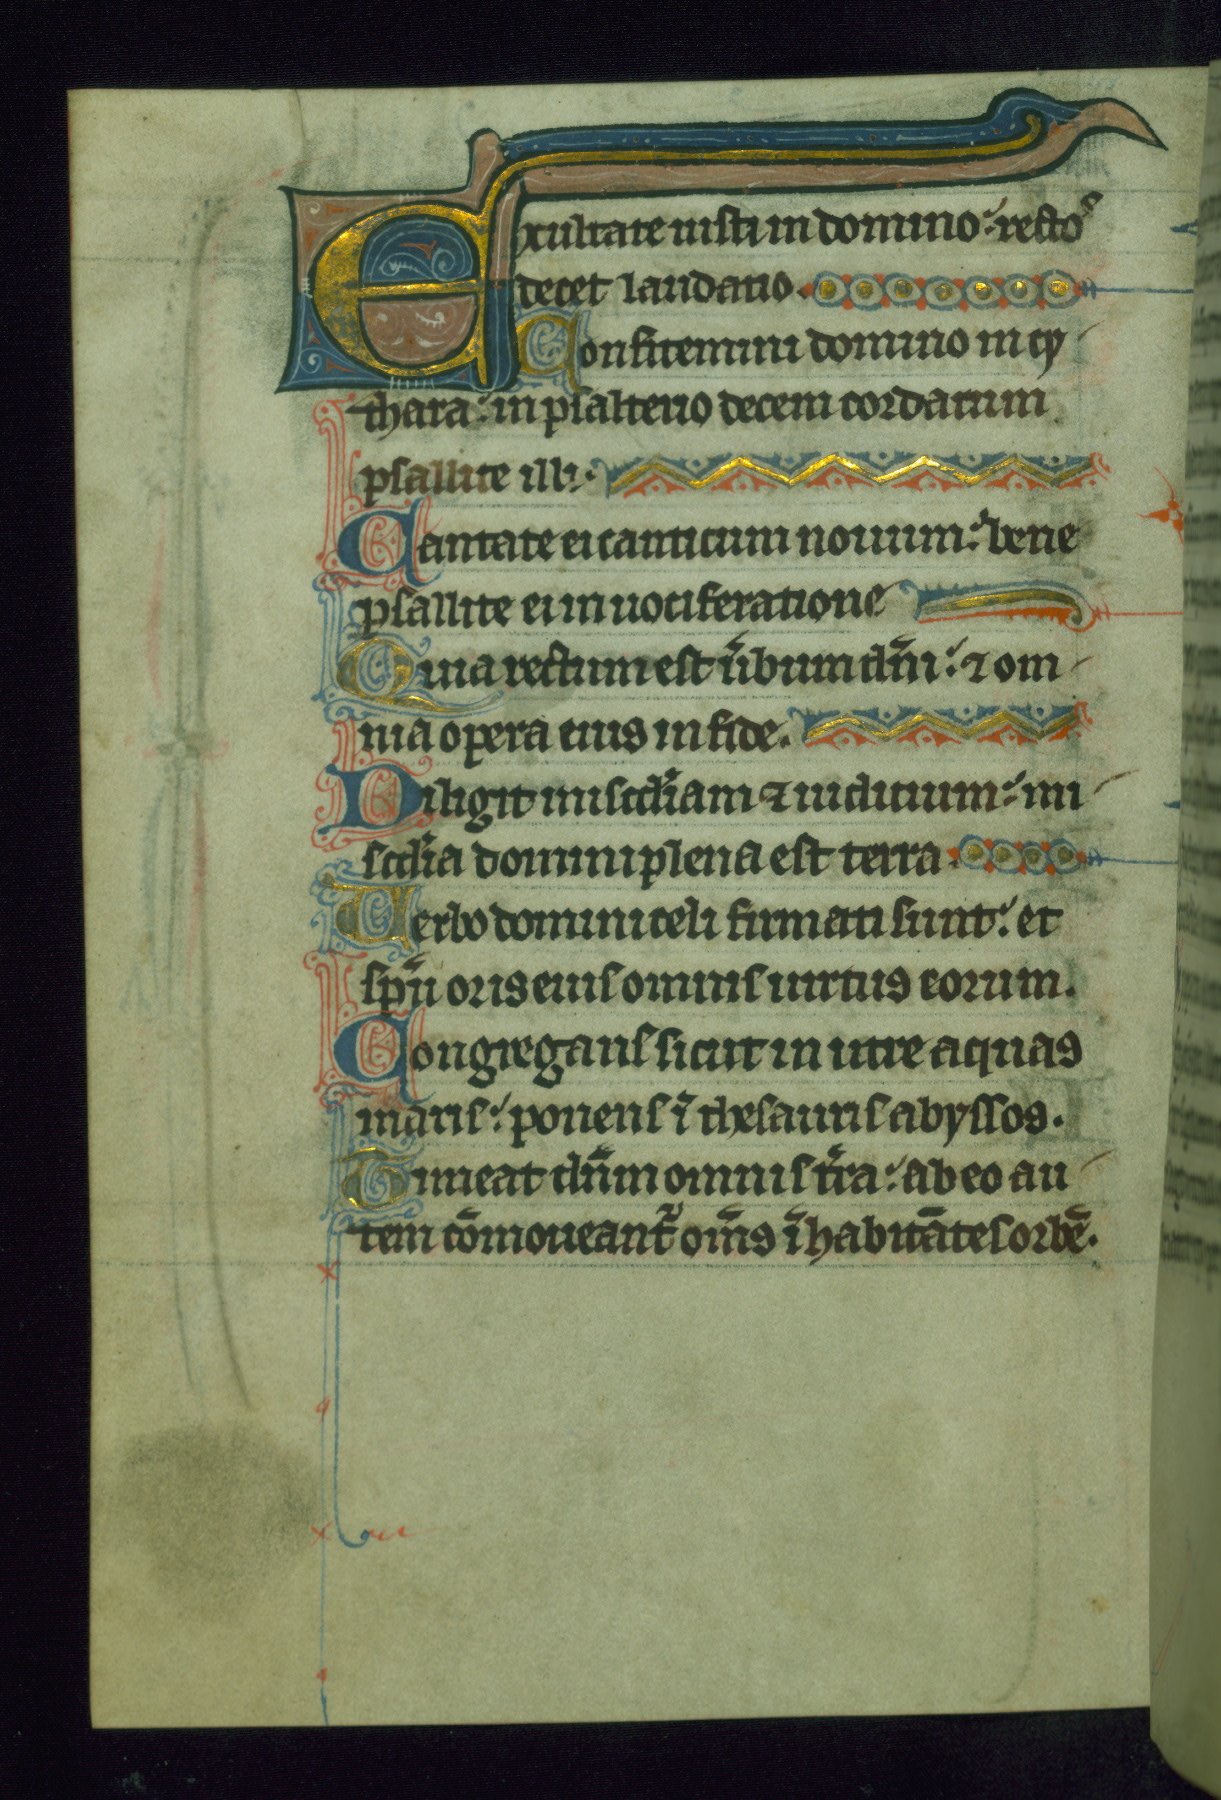 Exultate iusti in domino: recto᷑
decet laudatio.
Confitemini domino in cy
thara: in psalterio decem cordarum
psallite illi.
Cantate ei canticum nouum: bene
psallite ei in uociferatione
Quia rectum est u̅bum dn̅i: ⁊ om
nia opera eius in fide.
Diligit miscd̅iam ⁊ iudicium: mi
scd̅ia domini plena est terra.
Uerbo domini celi firmati sunt: et
sp̅u oris eius omnis uirtus eorum.
Congregans sicut in utre aquas
maris: ponens i̅ thesauris abyssos.
Timeat dn̅m omnis t̅ra: ab eo au
tem co̅moueant᷑ om̅s i̅habita̅tes orbe̅.